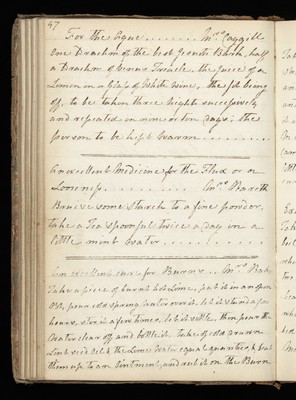 47
For the Ague........ Mrs. Caygill
One Drachm of the best Jesuits Bark, half
a Drachm of Venus Treacle, the juice of a
Lemon in a Glass of White Wine, the fit being
off, to be taken three nights successively
and repeated in nine or ten days; the
person to be kept warm..........
An excellent Medicine for the Flux or a
Looseness.......... Mrs.
Bruise some Starch to a fine powder,
take a Tea spoonful twice a day in a
little mint water..........
An excellent cure for Burns.. Mrs.
Take a piece of burnt Lime, put it in an open
Pot, pour old spring water over it, let it stand a few
hours, stir it a few times, let it settle, then pour the
Water clear off, and bottle it. Take of old drawn
Linseed Oil & the Lime Water equal quantities, & beat
them up to an Ointment, and rub it on the Burn